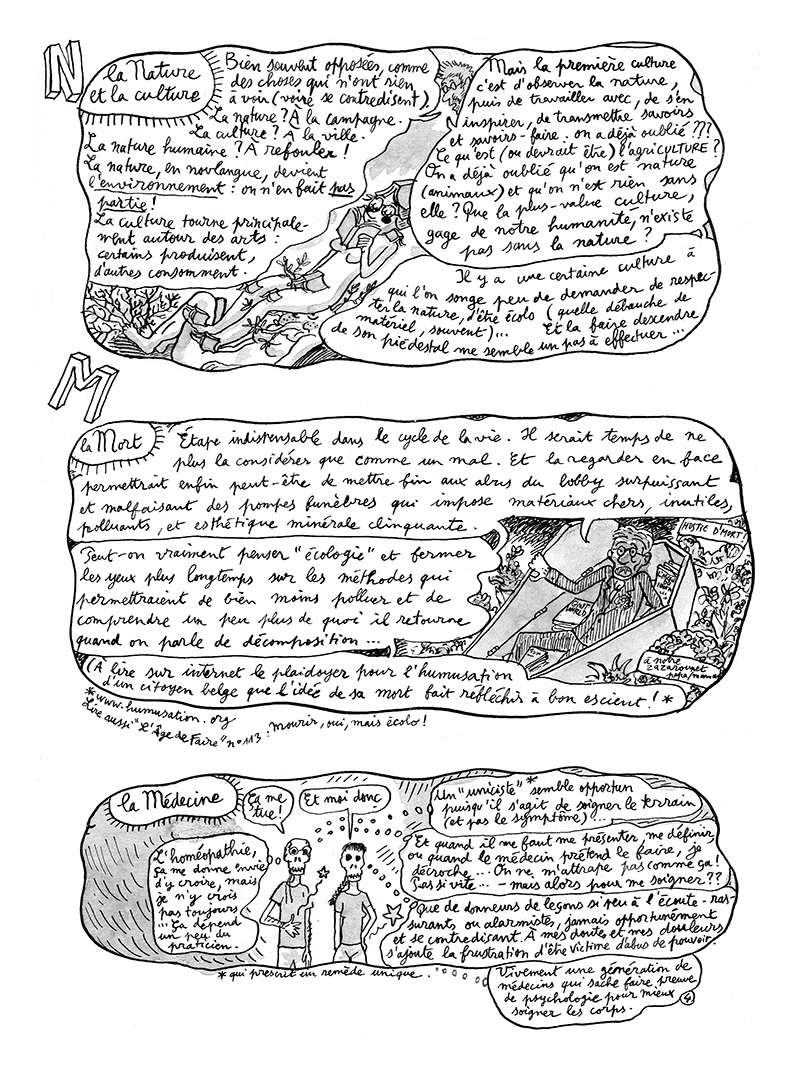 N
la Nature
et la culture
Bien souvent opposées, comme
des choses qui n'ont rien
à voir (voire se contredisent).
La nature ? À la campagne.
La culture ? À la ville.
La nature humaine ? A refouler !
La nature, en novlangue, devient
l'environnement : on n'en fait pas
partie !
La culture tourne principale-
ment autour des arts :
certains produisent,
d'autres consomment.
Mais la première culture
c'est d'observer la nature,
puis de travailler avec, de s'en
inspirer, de transmettre savoirs
et savoirs-faire. on a déjà oublié ???
Ce qu'est (ou devrait être) l'agriCULTURE ?
On a déjà oublié qu'on est nature
(animaux) et qu'on n'est rien sans
elle ? Que la plus-value culture,
gage de notre humanité, n'existe
pas sans la nature ?
Il y a une certaine culture à
qui l'on songe peu de demander de respec-
ter la nature, d'être écolo (quelle débauche de
matériel, souvent)... Et la faire descendre
de son piédestal me semble un pas à effectuer...
M
la Mort
Étape indispensable dans le cycle de la vie. Il serait temps de ne
plus la considérer que comme un mal. Et la regarder en face
permettrait enfin peut-être de mettre fin aux abus du lobby surpuissant
et malfaisant des pompes funèbres qui impose matériaux chers, inutiles,
polluants, et esthétique minérale clinquante.
Peut-on vraiment penser "écologie" et fermer
les yeux plus longtemps sur les méthodes qui
permettraient de bien moins polluer et de
comprendre un peu plus de quoi il retourne
quand on parle de décomposition ...
HOSTIE D'MORT!
à notre
zazarounet
papa/maman
(A lire sur internet le plaidoyer pour l'humusation
d'un citoyen belge que l'idée de sa mort fait réfléchir à bon escient ! *
* www.humusation.org
Lire aussi "L'Âge de Faire" n°113 : Mourir, oui, mais écolo !
la Médecine
Ça me
tue !
Et moi donc
L'homéopathie,
ça me donne envie
d'y croire, mais
je n'y crois
pas toujours
... Ça dépend
un peu du
praticien.
Un "uniciste"* semble opportun
puisqu'il s'agit de soigner le terrain
(et pas le symptôme)...
Et quand il me faut me présenter, me définir,
ou quand le médecin prétend le faire, je
décroche... On ne m'attrape pas comme ça !
Pas si vite... - mais alors pour me soigner ??
Que de donneurs de leçons si peu à l'écoute - ras-
surants, ou alarmistes, jamais opportunément
et se contredisant. A mes doutes, et mes douleurs
s'ajoute la frustration d'être victime d'abus de pouvoir.
* qui prescrit un remède unique.
Vivement une génération de
médecins qui sache faire preuve
de psychologie pour mieux
soigner les corps.
4